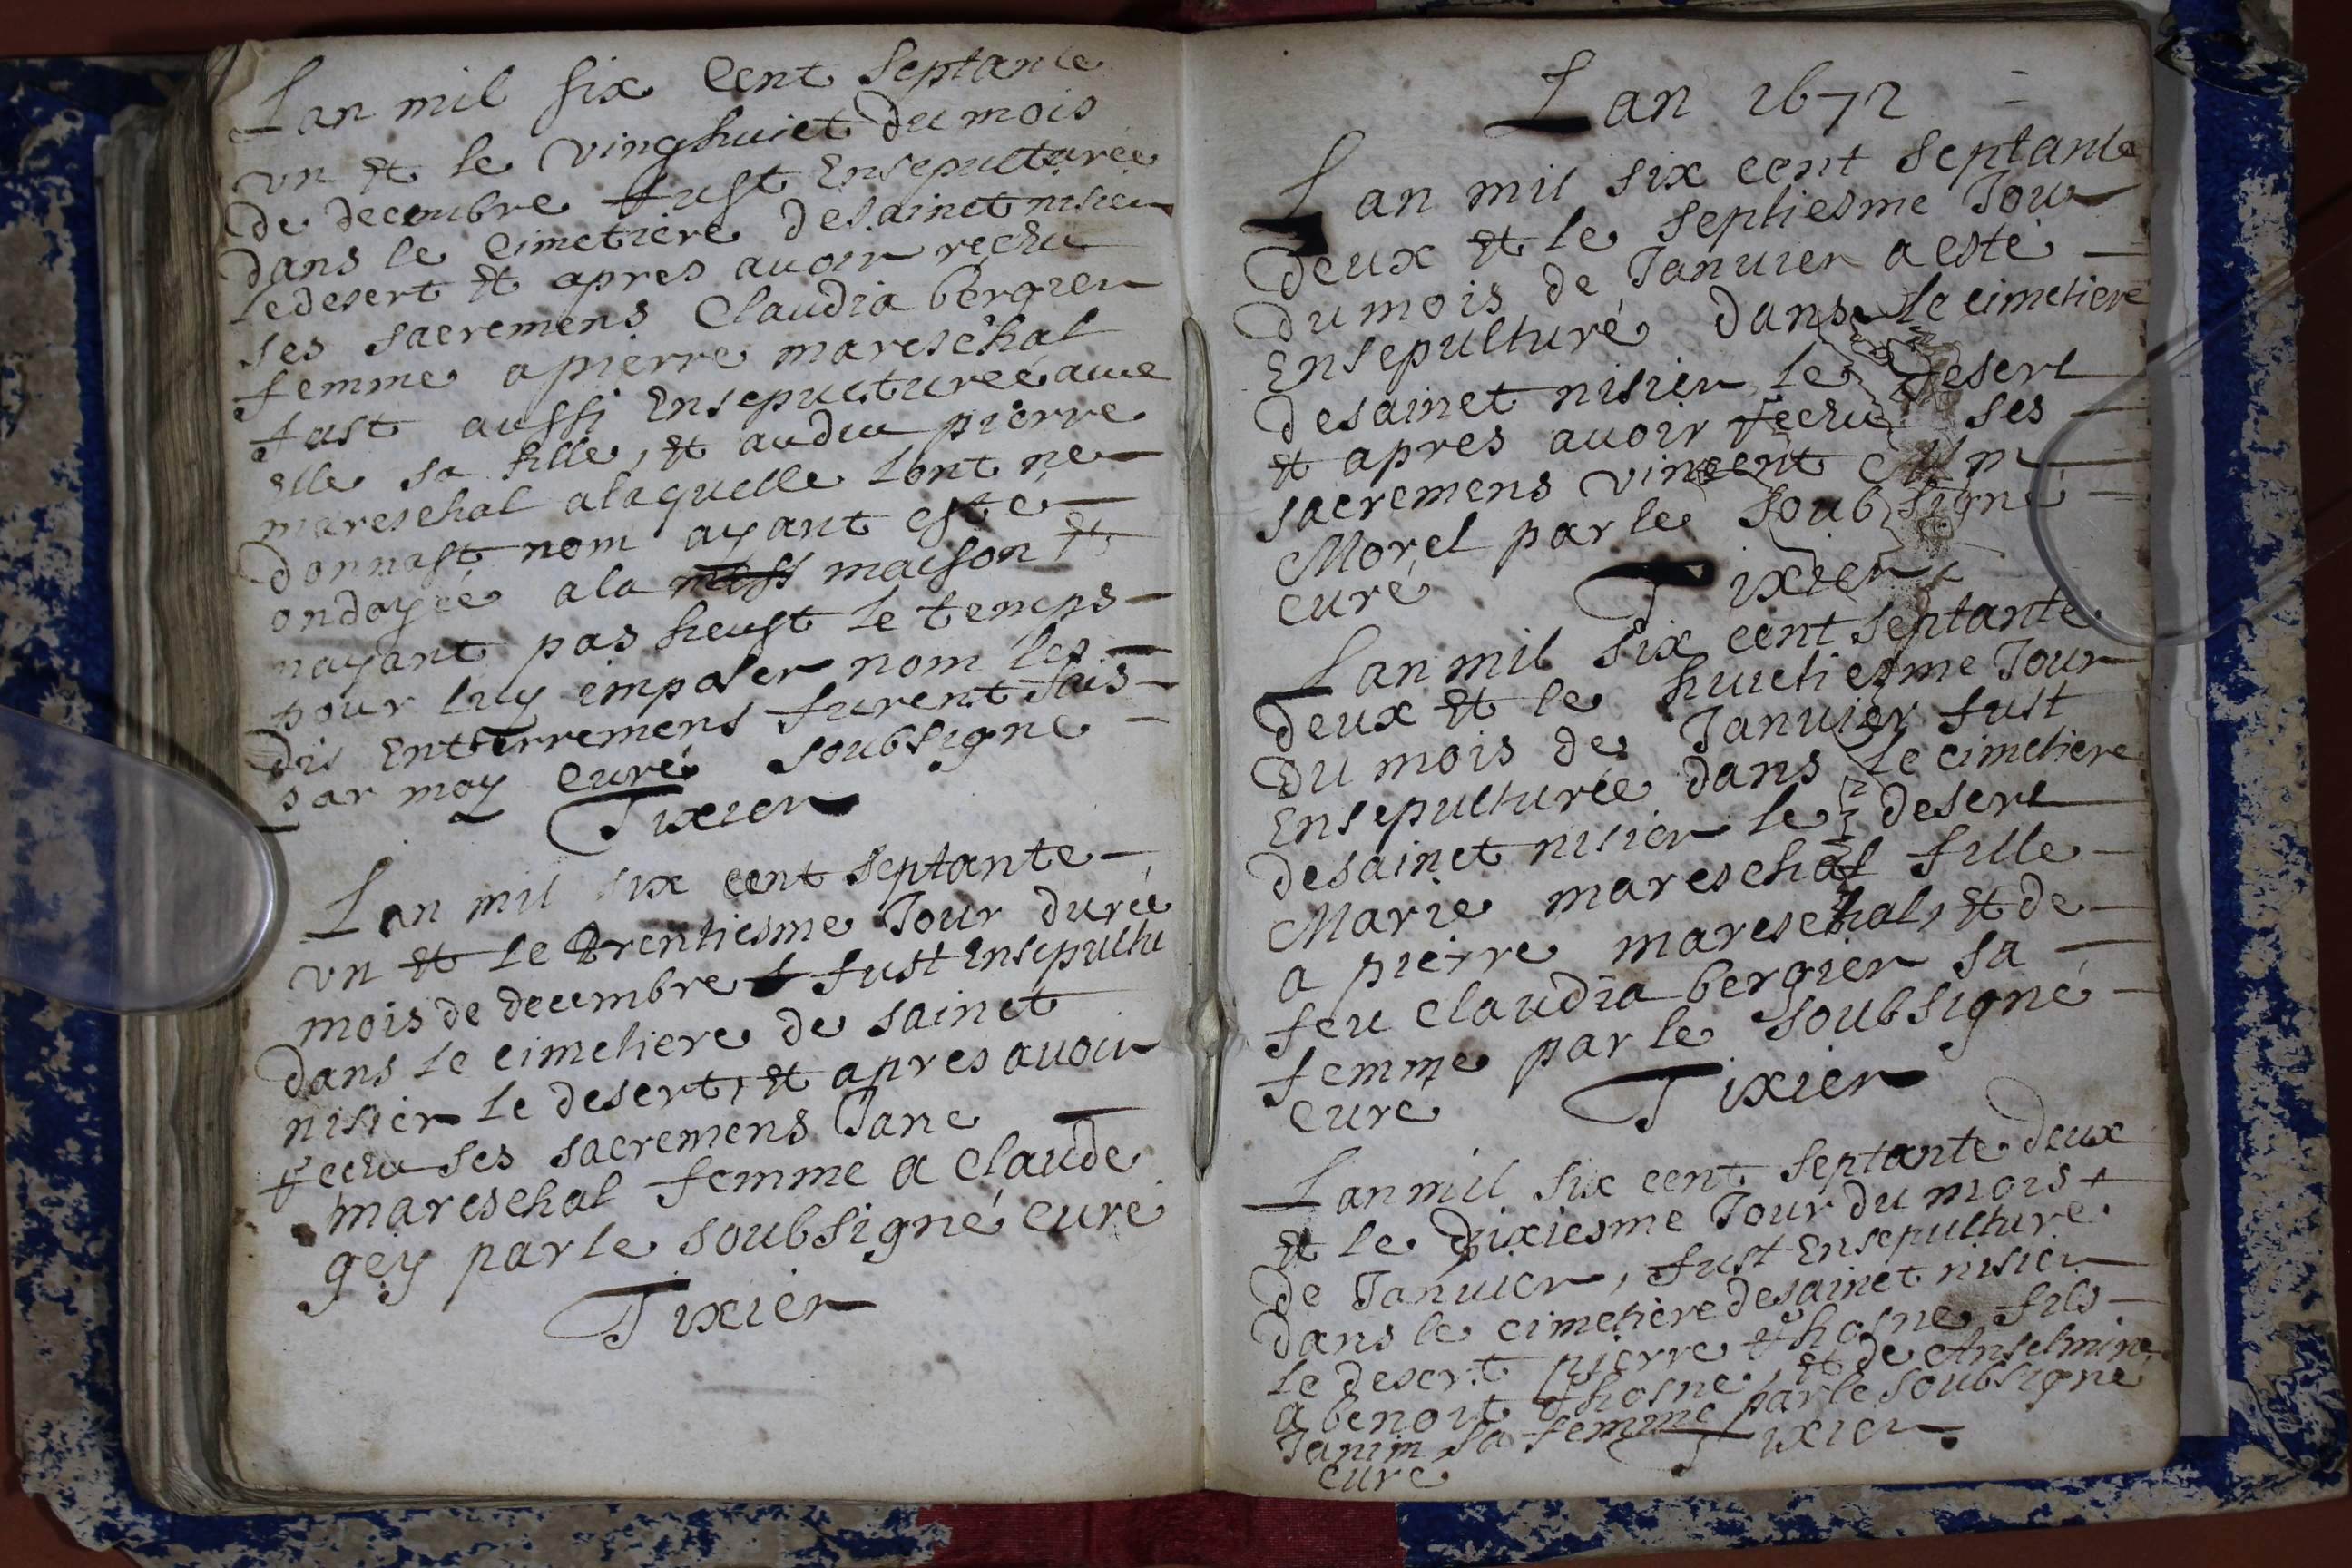 Lan mil six Cent septante
vn et le vinghuict du mois
de decembre fust Ensepulturée
dans le Cimetiere desainct nisier
ledesert et apres auoir rechu
ses sacremens Claudia bergier
femme apierre mareschal
fust aussi Ensepulturée auec
elle sa fille, et audu pierre
mareschal alaquelle lont ne
donnast nom ayant esté
ondoyée ala maison et
nayant pas heust le temps
pour luy imposer nom les
dis Enterremens furent fais
par moy Curé soubsigne
Tixier
Lan mil six cent septante
vn et le trentiesme Jour durée
mois de decembre fust Ensepultu
dans le cimetiere de sainct
nisier le desert, et apres auoir
rechu ses sacremens Jane
mareschal femme a Claude
gey par le soubsigné curé
Tixier
Lan 1672
Lan mil six cent septante
deux et le septiesme Jour
du mois de Januier a esté
Ensepulturé dans le cimetiere
desainct nisier le desert
et apres auoir rechu ses
sacremens vincent
Morel par le soubsigné
curé Tixier
Lan mil six cent septante
deux et le huictiesme Jour
du mois de Januier fust
Ensepulturée dans le cimetiere
desainct nisier le desert
Marie mareschal fille
a pierre mareschal, et de
feu Claudia bergier sa
femme par le soubsigné
curé Tixier
Lan mil six cent septante deux
et le dixiesme Jour du mois
de Januier, fust Ensepulturé
dans le cimetiere desainct nisier
le desert pierre thosne fils
a benoit thosne, et de Anselmine
Janin sa femme par le soubsigné
curé Tixier